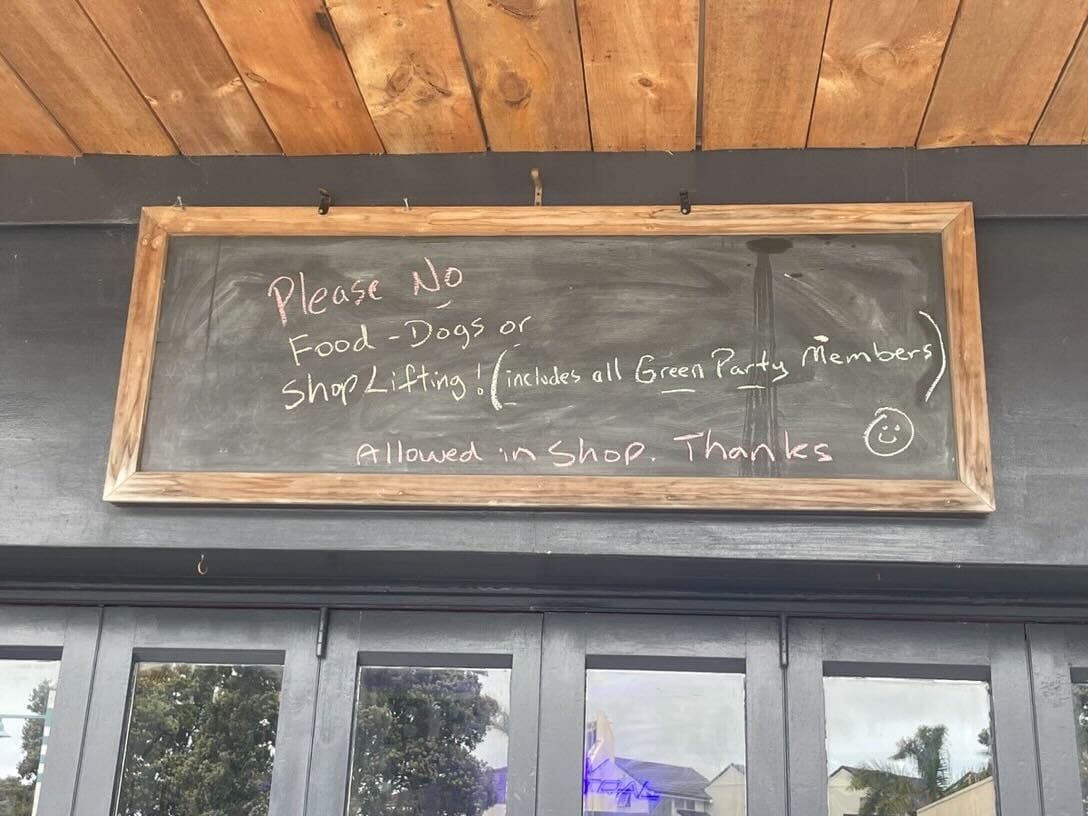 Please No
Food - Dogs or
Shop Lifting! (includes all Green Party Members)
Allowed in Shop. Thanks